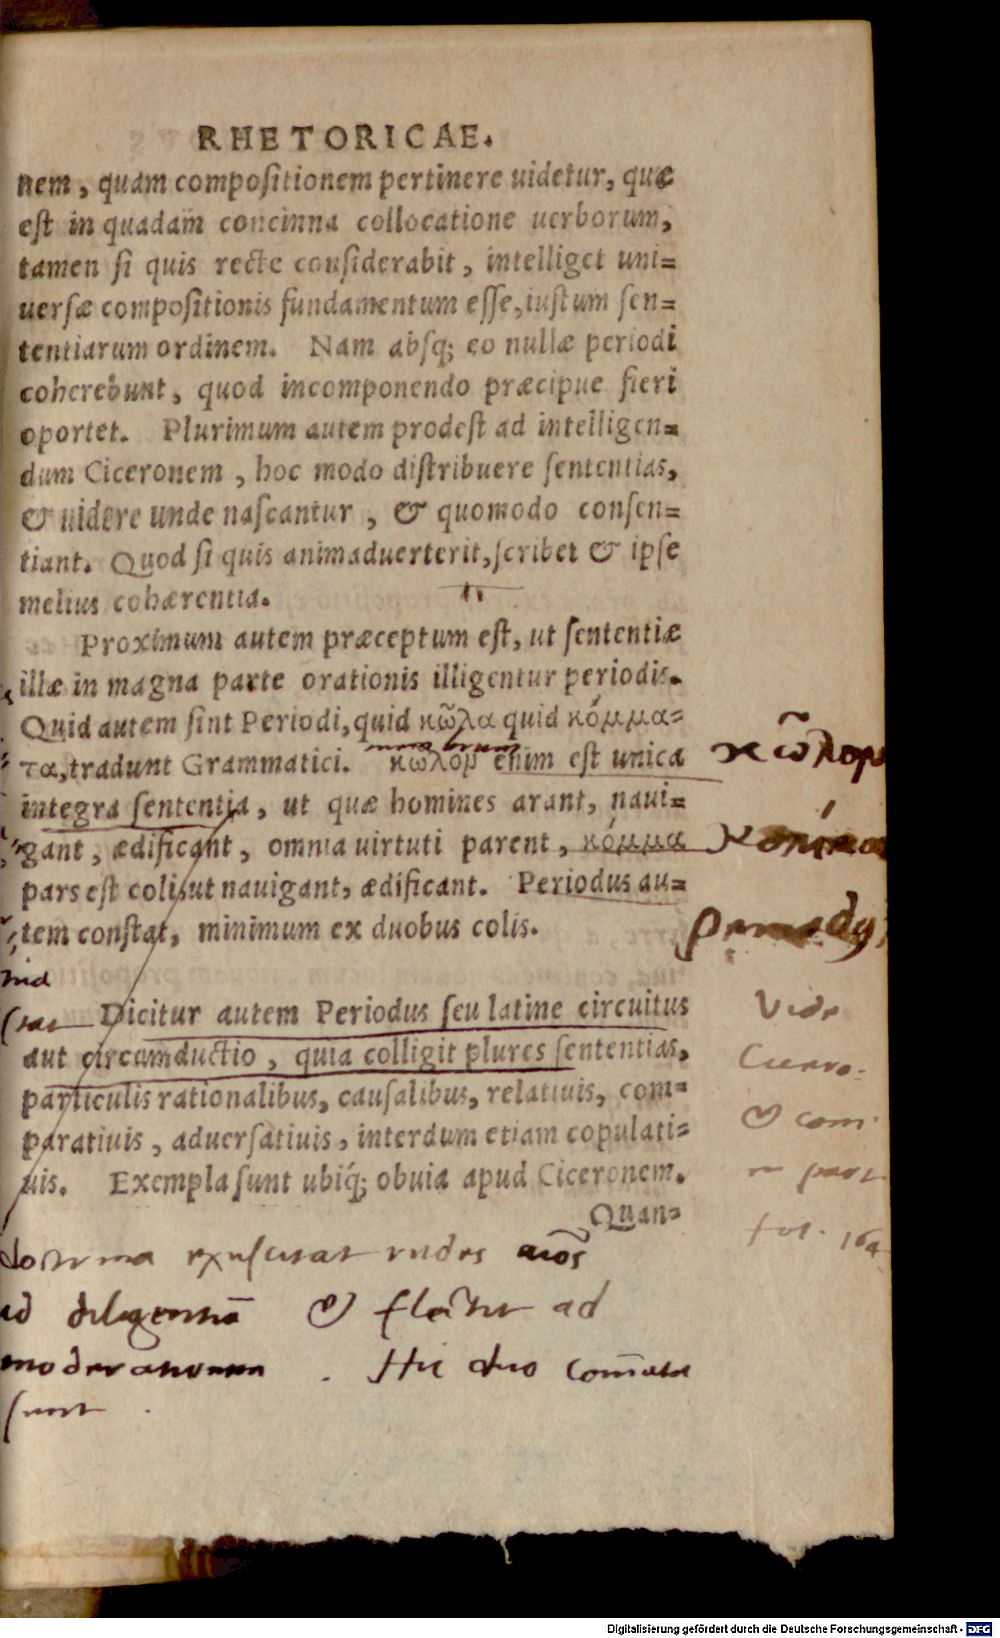 RHETORICAE.
nem, quam compoſitionem pertinere uidetur, quæ
eſt in quadam concinna collocatione uerborum,
tamen ſi quis recte conſiderabit, intelliget uni=
uerſæ compoſitionis fundamentum eſſe, iuſtum ſen=
tentiarum ordinem. Nam abſq; eo nullæ periodi
coherebunt, quod incomponendo præcipue fieri
oportet. Plurimum autem prodeſt ad intelligen=
dum Ciceronem, hoc modo diſtribuere ſententias,
& uidere unde naſcantur, & quomodo conſen=
tiant. Quod ſi quis animaduerterit, ſcribet & ipſe
melius cohærentia.
Proximum autem præceptum eſt, ut ſententiæ
illæ in magna parte orationis illigentur periodis.
Quid autem ſint Periodi, quid κῶλα quid κόμμα=
τα, tradunt Grammatici. κωλομ enim eſt unica
κῶλομ
integra ſententia, ut quæ homines arant, naui=
gant, ædificant, omnia uirtuti parent, κόμμα
pars eſt coli, ut nauigant, ædificant. Periodus au=
tem conſtat, minimum ex duobus colis.
Dicitur autem Periodus ſeu latine circuitus
Vide
aut circumductio, quia colligit plures ſententias,
Cicero.
particulis rationalibus, cauſalibus, relatiuis, com=
& com
paratiuis, aduerſatiuis, interdum etiam copulati=
uis. Exempla ſunt ubiq́; obuia apud Ciceronem.
Quan=
fol. 164
exuſcitat rudes aĩos
ad diligentiã & ad
moderationem. Hic duo com̃ata
ſunt.
Digitalisierung gefördert durch die Deutsche Forschungsgemeinschaft - DFG